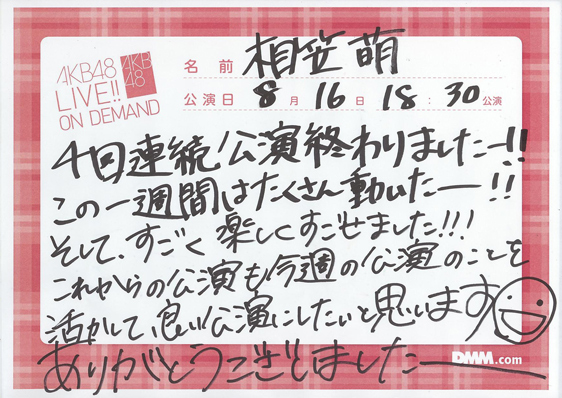 AKB48
LIVE!!
ON DEMAND
AKB
48
名前 相笠萌
公演日 8月16日 18:30公演
4回連続公演終わりましたー!!
この一週間はたくさん動いたー!!
そして、すごく楽しくすごせました!!!
これからの公演も今週の公演のことを
活かして、良い公演にしたいと思います
ありがとうございましたー
DMM.com